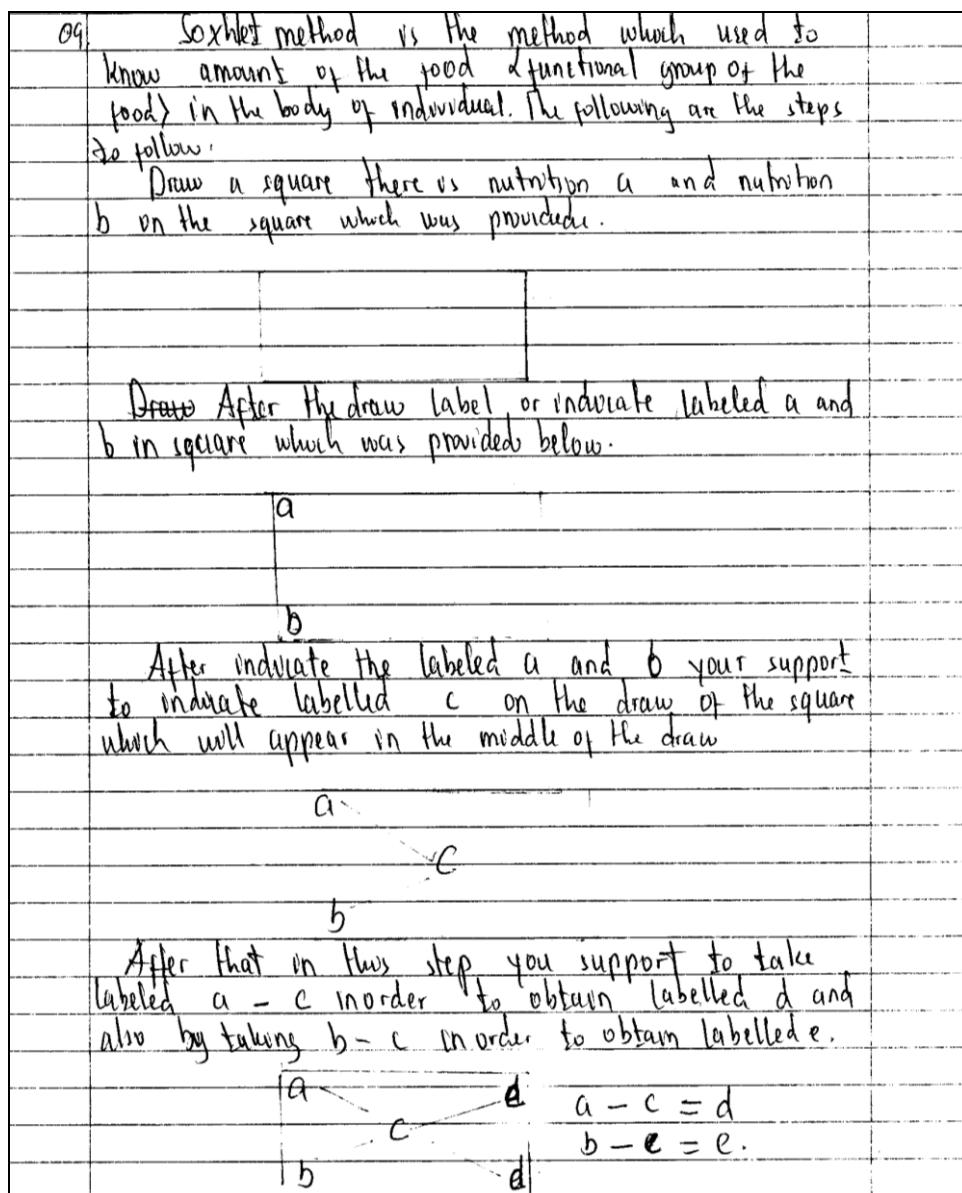 09 Soxhlet method is the method which used to
know amount of the food (functional group of the
food) in the body of individual. The following are the steps
to follow.
Draw a square there is nutrition a and nutrition
b on the square which was providede.
Draw After the draw label or indicate labeled a and
b in square which was provided below.
a
b
After indicate the labeled a and b your support
to indicate labelled c on the draw of the square
which will appear in the middle of the draw
a
c
b
After that in this step you support to take
labeled a - c inorder to obtain labelled d and
also by taking b - c in order to obtain labelled e.
a d a - c = d
c b - c = e.
b d